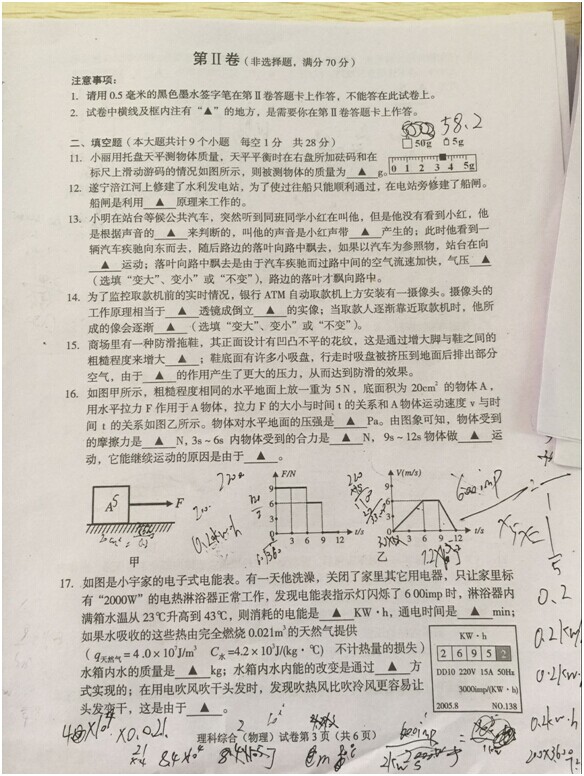 第Ⅱ卷（非选择题，满分70分）
注意事项：
1. 请用0.5毫米的黑色墨水签字笔在第Ⅱ卷答题卡上作答，不能答在此试卷上。
2. 试卷中横线及框内注有“▲”的地方，是需要你在第Ⅱ卷答题卡上作答。
58.2
二、填空题（本大题共计9个小题 每空1分 共28分）
50g 5g
11. 小丽用托盘天平测物体质量，天平平衡时在右盘所加砝码和在
标尺上滑动游码的情况如图所示，则被测物体的质量为 ▲ g。
0 1 2 3 4 5g
12. 遂宁涪江河上修建了水利发电站，为了使过往船只能顺利通过，在电站旁修建了船闸。
船闸是利用 ▲ 原理来工作的。
13. 小明在站台等候公共汽车，突然听到同班同学小红在叫他，但是他没有看到小红，他
是根据声音的 ▲ 来判断的，叫他的声音是小红声带 ▲ 产生的；此时他看到一
辆汽车疾驰向东而去，随后路边的落叶向路中飘去，如果以汽车为参照物，站台在向
▲ 运动；落叶向路中飘去是由于汽车疾驰而过路中间的空气流速加快，气压 ▲
（选填“变大”、变小”或“不变”），路边的落叶才飘向路中。
14. 为了监控取款机前的实时情况，银行ATM自动取款机上方安装有一摄像头。摄像头的
工作原理相当于 ▲ 透镜成倒立 ▲ 的实像；当取款人逐渐靠近取款机时，他所
成的像会逐渐 ▲ （选填“变大”、变小”或“不变”）。
15. 商场里有一种防滑拖鞋，其正面设计有凹凸不平的花纹，这是通过增大脚与鞋之间的
粗糙程度来增大 ▲ ；鞋底面有许多小吸盘，行走时吸盘被挤压到地面后排出部分
空气，由于 ▲ 的作用产生了更大的压力，从而达到防滑的效果。
16. 如图甲所示，粗糙程度相同的水平地面上放一重为5N，底面积为20cm²的物体A，
用水平拉力F作用于A物体，拉力F的大小与时间t的关系和A物体运动速度v与时
间t的关系如图乙所示。物体对水平地面的压强是 ▲ Pa。由图象可知，物体受到
的摩擦力是 ▲ N，3s～6s内物体受到的合力是 ▲ N，9s～12s物体做 ▲ 运
动，它能继续运动的原因是由于 ▲ 。
F/N V(m/s)
600imp
A 5 F
9
6
3
0 3 6 9 12 t/s
9
6
3
0 3 6 9 12 t/s
甲 乙
17. 如图是小宇家的电子式电能表。有一天他洗澡，关闭了家里其它用电器，只让家里标
有“2000W”的电热淋浴器正常工作，发现电能表指示灯闪烁了600imp时，淋浴器内
满箱水温从23℃升高到43℃，则消耗的电能是 ▲ KW·h，通电时间是 ▲ min；
如果水吸收的这些热由完全燃烧0.021m³的天然气提供
（q天然气=4.0×10⁷J/m³ C水=4.2×10³J/(kg·℃) 不计热量的损失）
水箱内水的质量是 ▲ kg；水箱内水内能的改变是通过 ▲ 方
式实现的；在用电吹风吹干头发时，发现吹热风比吹冷风更容易让
头发变干，这是由于 ▲ 。
KW·h
2 6 9 5 2
DD10 220V 15A 50Hz
3000imp/(KW·h)
2005.8 NO.138
0.2
理科综合（物理）试卷第3页（共6页）